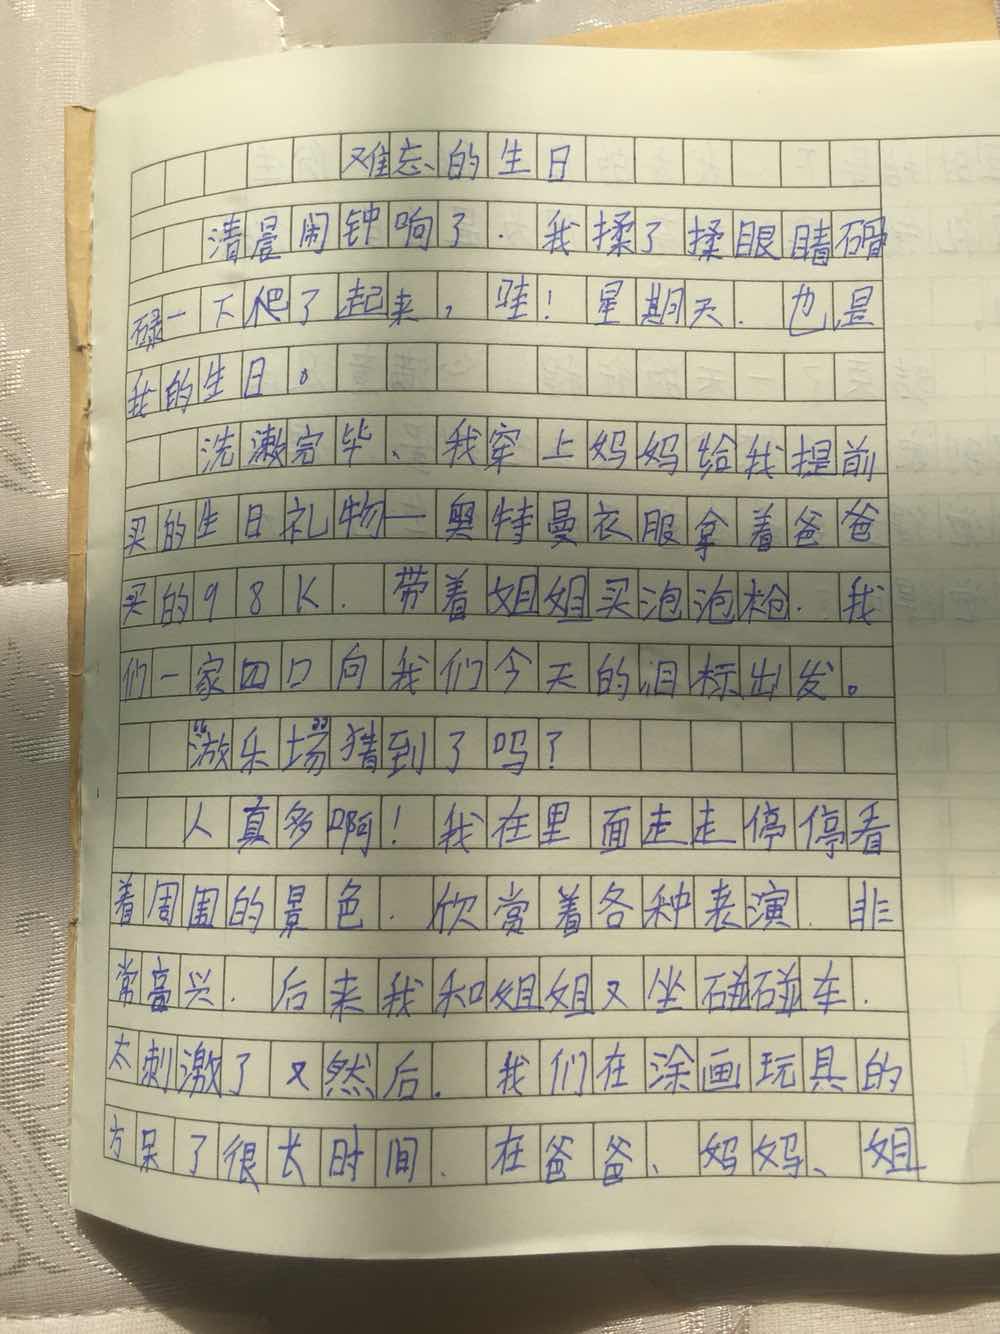 难忘的生日
清晨闹钟响了.我揉了揉眼睛碌
碌一下爬了起来,哇!星期天.也是
我的生日。
洗漱完毕、我穿上妈妈给我提前
买的生日礼物—奥特曼衣服拿着爸爸
买的98K.带着姐姐买泡泡枪.我
们一家四口向我们今天的目标出发。
“游乐场”猜到了吗?
人真多啊!我在里面走走停停看
着周围的景色.欣赏着各种表演.非
常高兴.后来我和姐姐又坐碰碰车.
太刺激了又然后.我们在涂画玩具的
方呆了很长时间.在爸爸、妈妈、姐